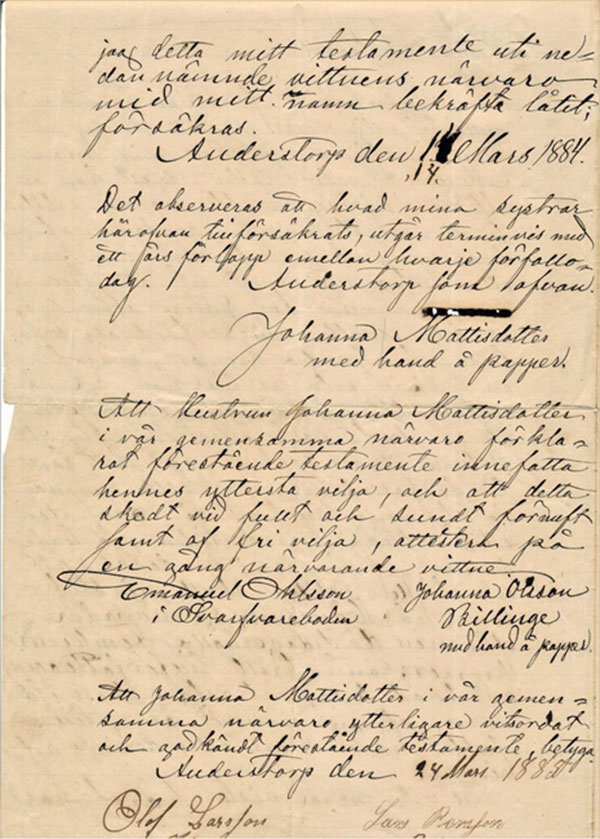 jag detta mitt testamente uti ne=
dan nämnde vittnens närvaro
mid mitt namn bekräfta låtit;
försäkras.
Anderstorp den Mars 1884.
14.
Det observeras att hvad mina systrar
härofvan tillförsäkrats, utgår terminvis med
ett års förlopp emellan hvarje förfallo-
dag. Anderstorp som ofvan.
Johanna Mattisdotter
med hand å papper.
Att Hustrun Johanna Mattisdotter
i vår gemensamma närvaro förkla-
rat förestående testamente innefatta
hennes yttersta vilja, och att detta
skedt vid fullt och sundt förnuft
samt af fri vilja, attestera på
en gång närvarande vittne
Emanuel Ohlsson Johanna Olsson
i Svarfvareboden Billinge
med hand å papper.
Att Johanna Mattisdotter i vår gemen=
samma närvaro ytterligare vitsordat
och godkändt förestående testamente, betyga
Anderstorp den 24 Mars
Olof Larsson Lars